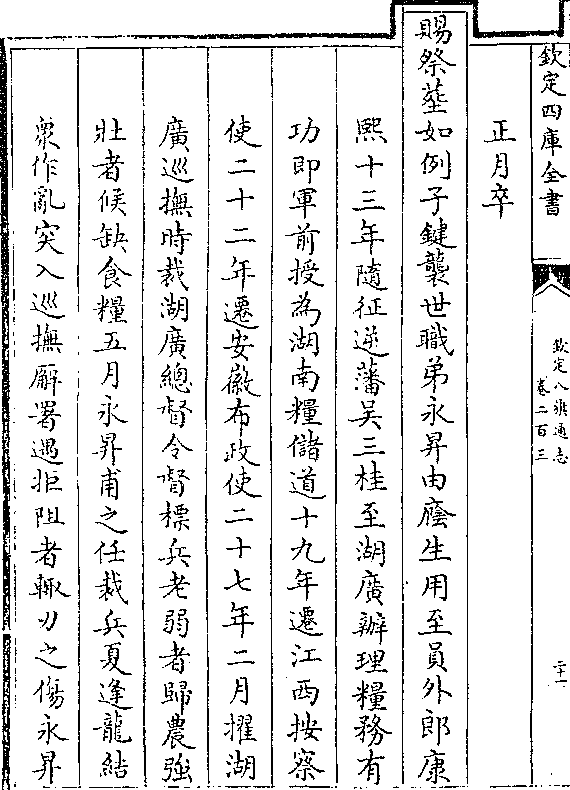 欽定四庫全書
欽定八旗通志
卷二百三
二十一
正月卒
賜祭塟如例子鍵襲世職弟永昇由廕生用至員外郎康
熙十三年隨征逆藩吴三桂至湖廣辦理糧務有
功即軍前授為湖南糧儲道十九年遷江西按察
使二十二年遷安徽布政使二十七年二月擢湖
廣巡撫時裁湖廣總督令督標兵老弱者歸農強
壯者候缺食糧五月永昇甫之任裁兵夏逢龍結
衆作亂突入巡撫廨署遇拒阻者輙刃之傷永昇